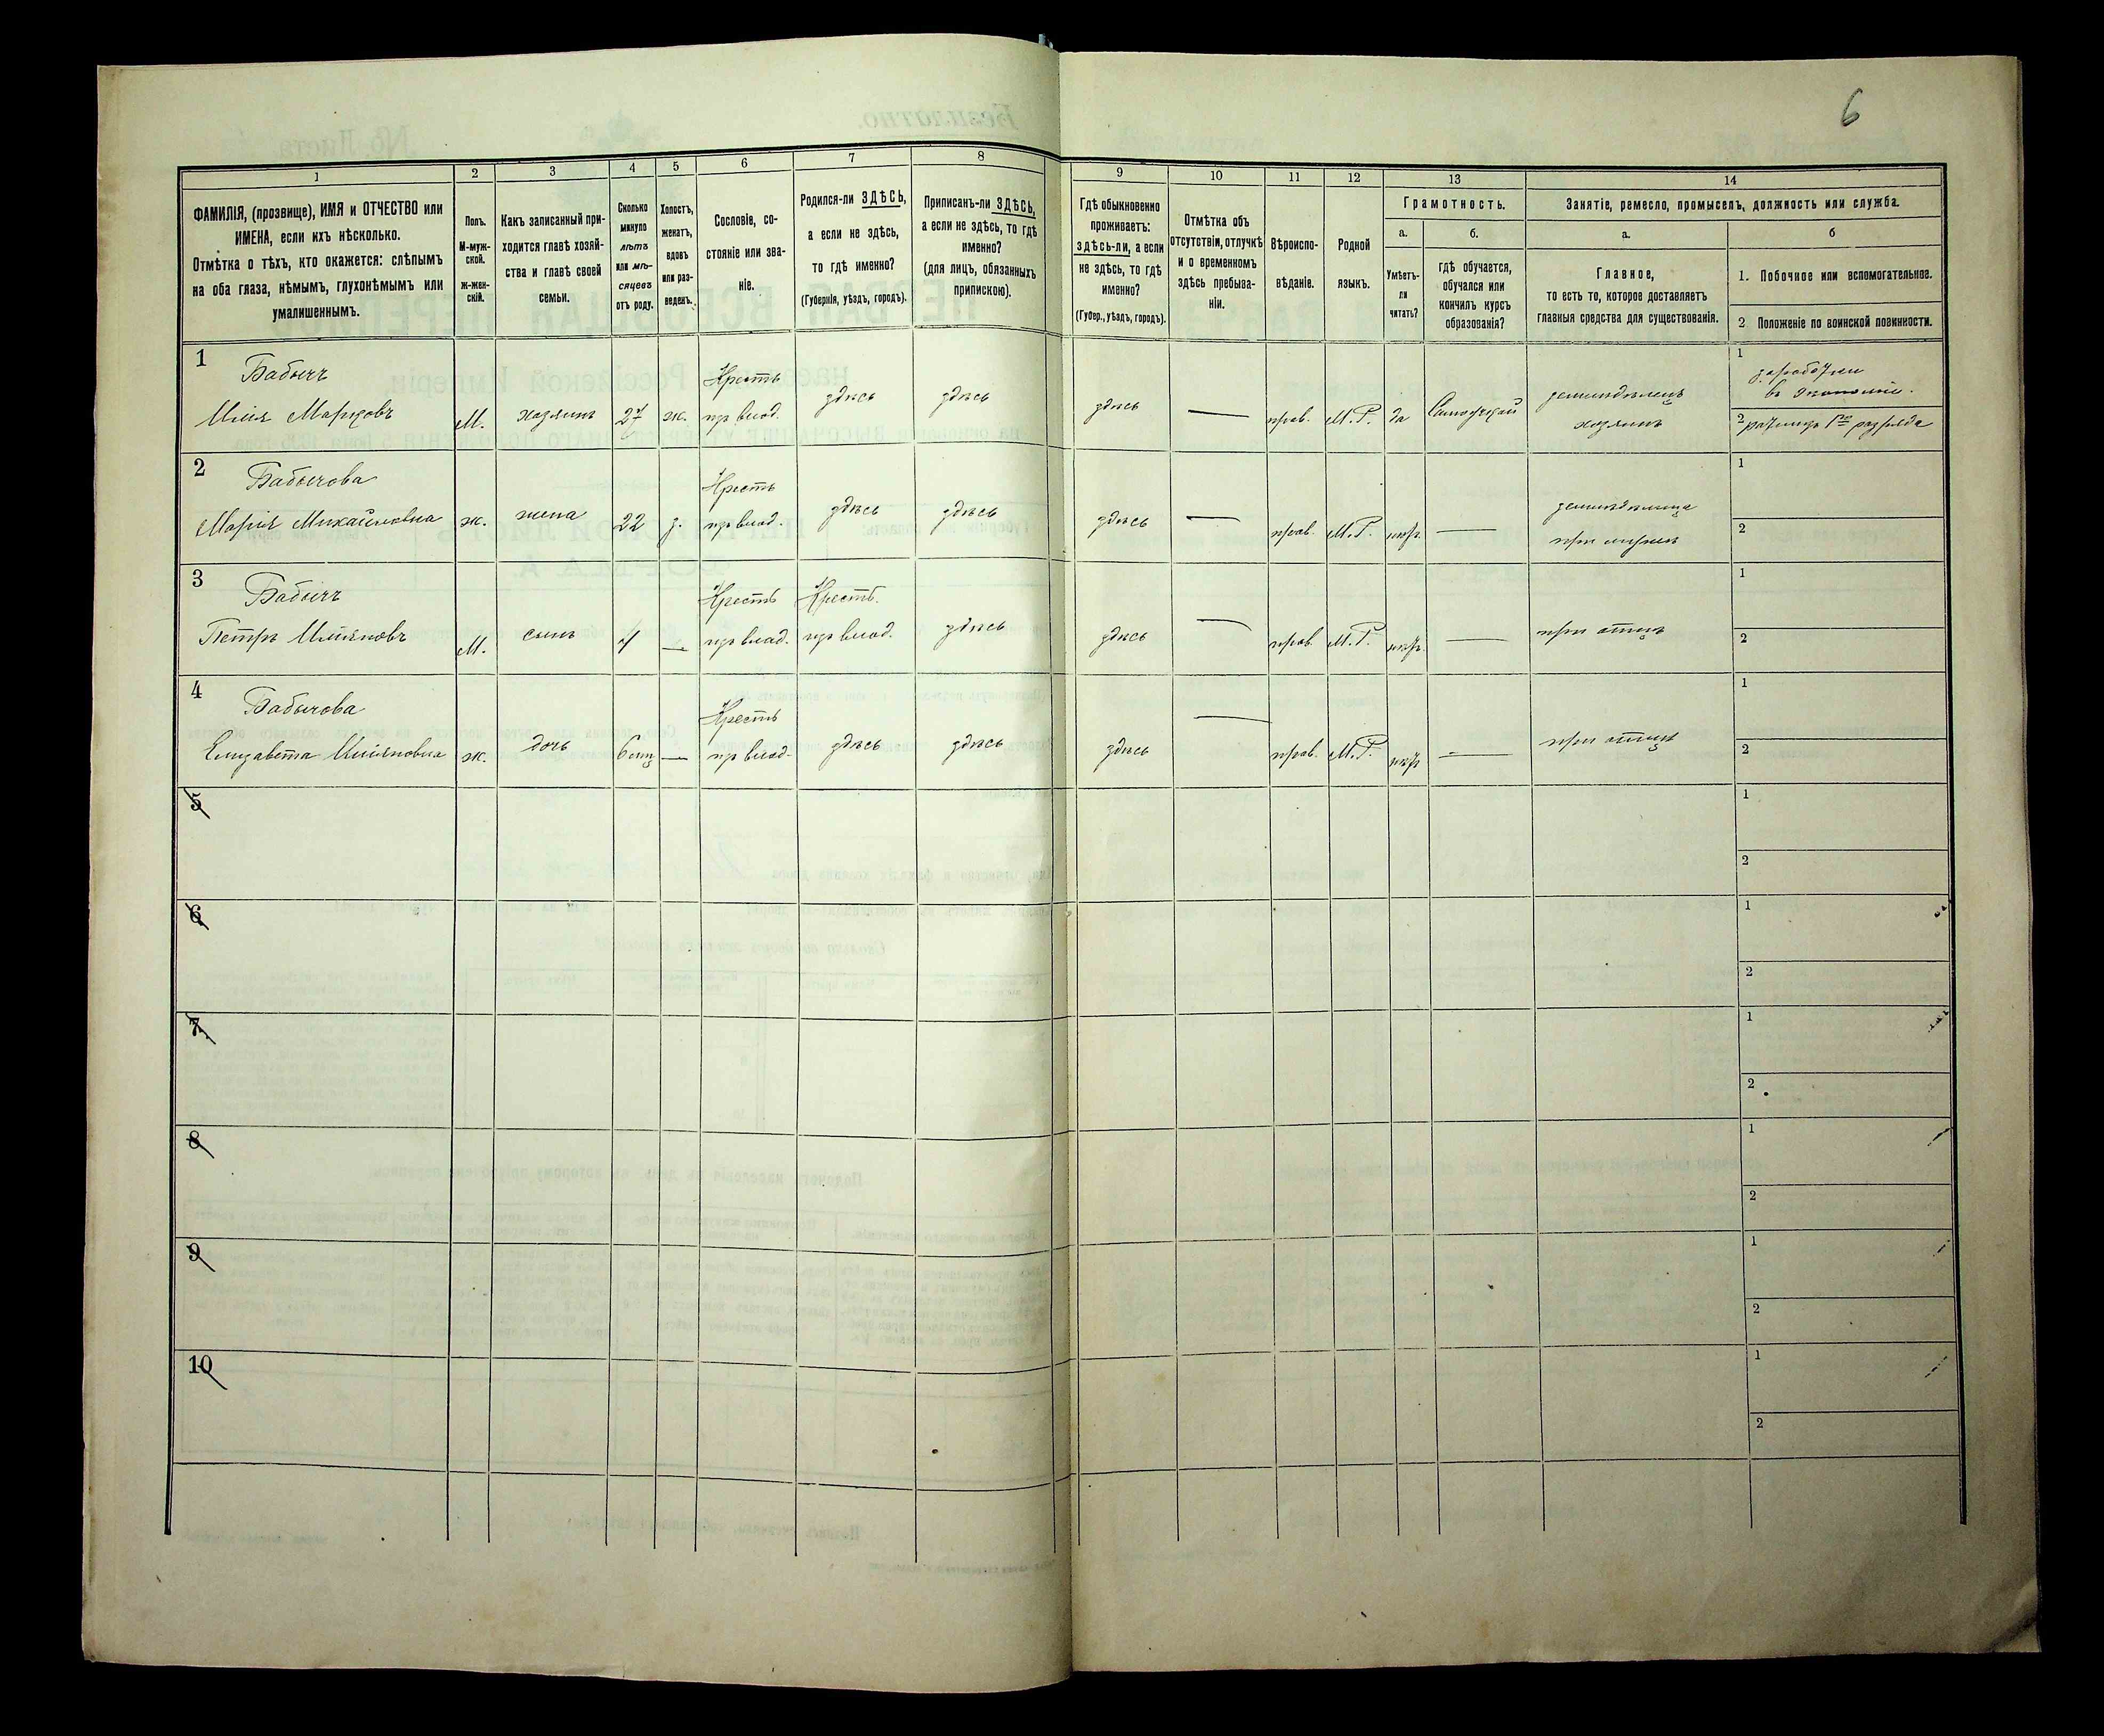 6
1
2
3
4
5
6
7
8
9
10
11
12
13
14
ФАМИЛІЯ, (прозвище), ИМЯ и ОТЧЕСТВО или
ИМЕНА, если ихъ нѣсколько.
Отмѣтка о тѣхъ, кто окажется: слѣпымъ
на оба глаза, нѣмымъ, глухонѣмымъ или
умалишеннымъ.
Полъ.
М-муж-
ской.
Ж-жен-
скій.
Какъ записанный при-
ходится главѣ хозяй-
ства и главѣ своей
семьи.
Сколько
минуло
лѣтъ
или мѣ-
сяцевъ
отъ роду.
Холостъ,
женатъ,
вдовъ
или раз-
веденъ.
Сословіе, со-
стояніе или зва-
ніе.
Родился-ли ЗДѢСЬ,
а если не здѣсь,
то гдѣ именно?
(Губернія, уѣздъ, городъ).
Приписанъ-ли ЗДѢСЬ,
а если не здѣсь, то гдѣ
именно?
(для лицъ, обязанныхъ
припискою).
Гдѣ обыкновенно
проживаетъ:
здѣсь-ли, а если
не здѣсь, то гдѣ
именно?
(Губер., уѣздъ, городъ).
Отмѣтка объ
отсутствіи, отлучкѣ
и о временномъ
здѣсь пребыва-
ніи.
Вѣроиспо-
вѣданіе.
Родной
языкъ.
Грамотность.
а.
Умѣетъ-
ли
читать?
б.
гдѣ обучается,
обучался или
кончилъ курсъ
образованія?
Занятіе, ремесло, промыселъ, должность или служба.
а.
Главное,
то есть то, которое доставляетъ
главныя средства для существованія.
б
1. Побочное или вспомогательное.
2 Положеніе по воинской повинности.
1
Бабычъ
Илія Марковъ
М. хозяинъ 27 ж.
Крестъ
изъ влад.
здѣсь здѣсь здѣсь — прав. М.Р. да
земледѣлецъ
хозяинъ
1
въ экономіи.
2 ратникъ 1го разряда
2
Бабычова
Марія Михайловна
ж. жена 22 з.
Крестъ
изъ влад.
здѣсь здѣсь здѣсь — прав. М.Р. —
при мужѣ
1
2
3
Бабычъ
Петръ Иліяновъ
М. сынъ 4 —
Крестъ
изъ влад.
Крестъ.
изъ влад.
здѣсь здѣсь — прав. М.Р. —
при отцѣ
1
2
4
Бабычова
Елизавета Иліяновна
ж. дочь —
Крестъ
изъ влад.
здѣсь здѣсь здѣсь — прав. М.Р. —
при отцѣ
1
2
5
1
2
6
1
2
7
1
2
8
1
2
9
1
2
10
1
2